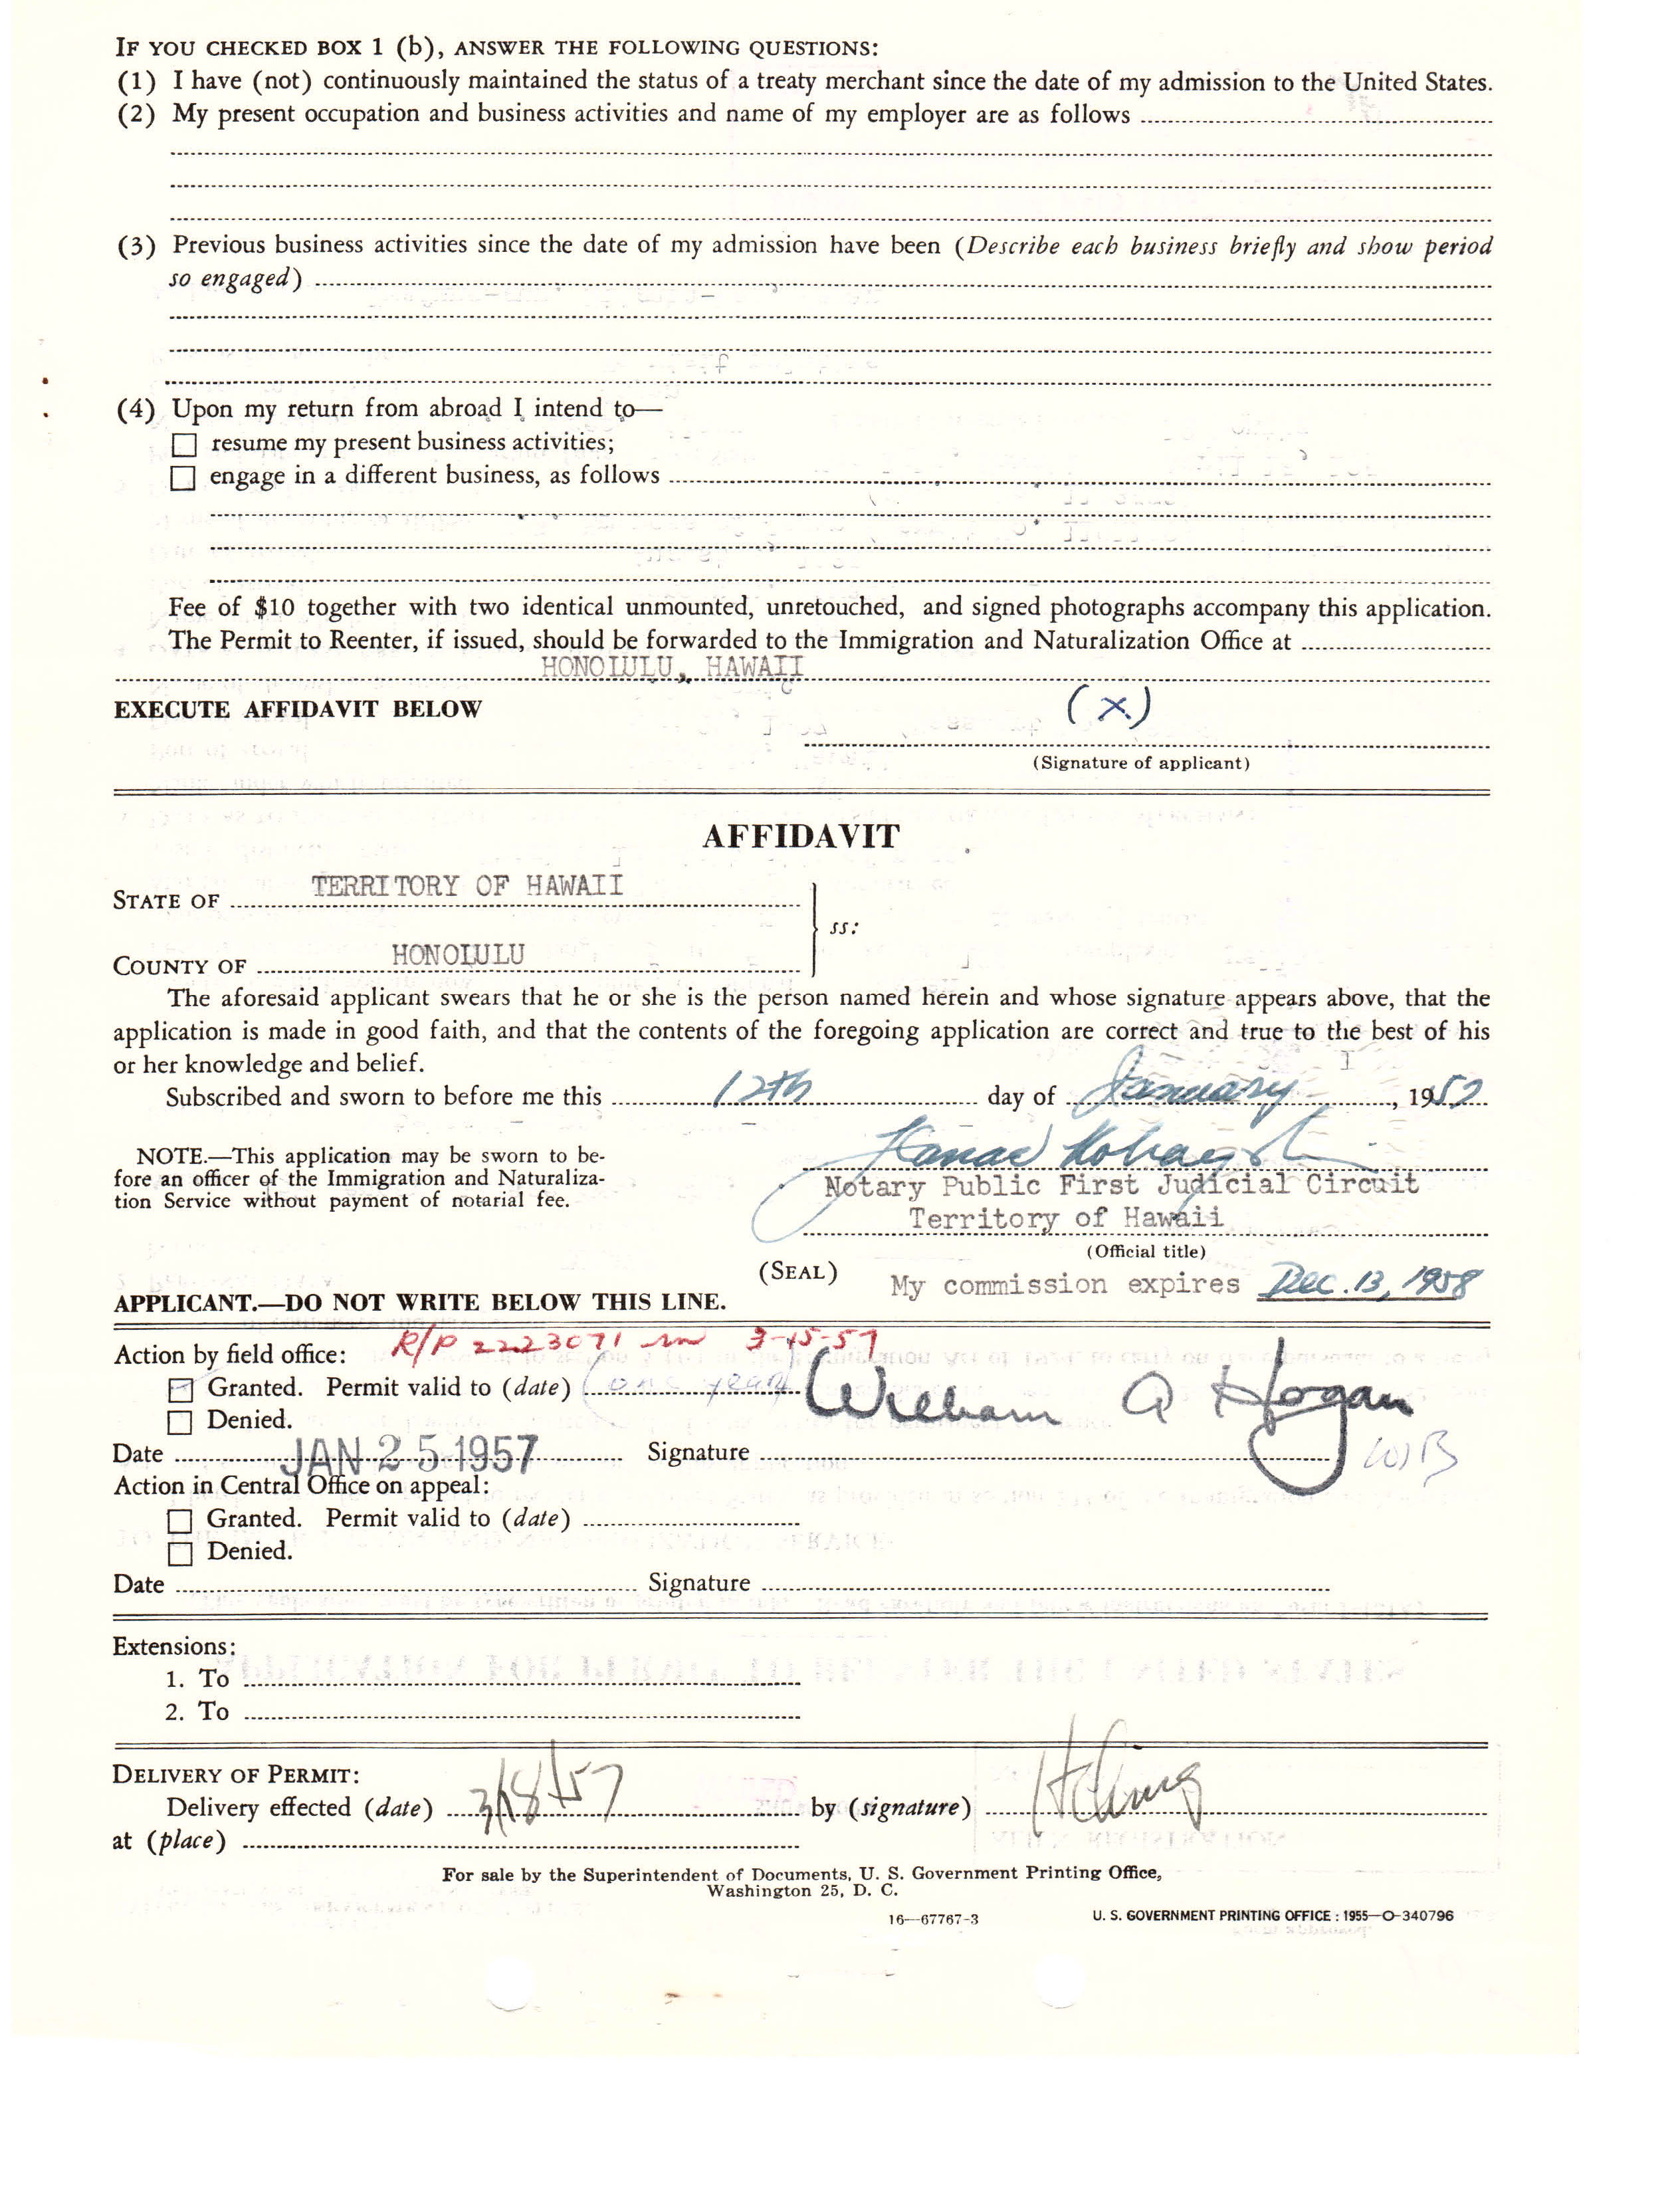 IF YOU CHECKED BOX 1 (b), ANSWER THE FOLLOWING QUESTIONS:
(1) I have (not) continuously maintained the status of a treaty merchant since the date of my admission to the United States.
(2) My present occupation and business activities and name of my employer are as follows
(3) Previous business activities since the date of my admission have been (Describe each business briefly and show period
so engaged)
(4) Upon my return from abroad I intend to—
resume my present business activities;
engage in a different business, as follows
Fee of $10 together with two identical unmounted, unretouched, and signed photographs accompany this application.
The Permit to Reenter, if issued, should be forwarded to the Immigration and Naturalization Office at
HONOLULU, HAWAII
EXECUTE AFFIDAVIT BELOW (X)
(Signature of applicant)
AFFIDAVIT
STATE OF TERRITORY OF HAWAII
ss:
COUNTY OF HONOLULU
The aforesaid applicant swears that he or she is the person named herein and whose signature appears above, that the
application is made in good faith, and that the contents of the foregoing application are correct and true to the best of his
or her knowledge and belief.
Subscribed and sworn to before me this 12th day of January, 1957
NOTE.—This application may be sworn to be-
fore an officer of the Immigration and Naturaliza-
tion Service without payment of notarial fee.
Notary Public First Judicial Circuit
Territory of Hawaii
(Official title)
(SEAL) My commission expires Dec. 13, 1958
APPLICANT.—DO NOT WRITE BELOW THIS LINE.
R/P 2223071 3-15-57
Action by field office:
Granted. Permit valid to (date) (one year)
Denied.
Date JAN 25 1957 Signature William A Hogan
Action in Central Office on appeal:
Granted. Permit valid to (date)
Denied.
Date Signature
Extensions:
1. To
2. To
DELIVERY OF PERMIT:
Delivery effected (date) 3/18/57 by (signature) HChing
at (place)
For sale by the Superintendent of Documents, U. S. Government Printing Office,
Washington 25, D. C.
16—67767-3 U. S. GOVERNMENT PRINTING OFFICE : 1955—O-340796